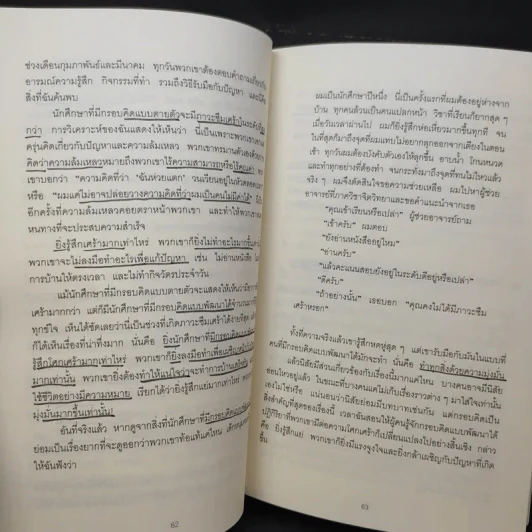 ช่วงเดือนกุมภาพันธ์และมีนาคม ทุกวันพวกเขาต้องตอบคำถามเกี่ยวกับ
อารมณ์ความรู้สึก กิจกรรมที่ทำ รวมถึงวิธีรับมือกับปัญหา และนี่คือ
สิ่งที่ฉันค้นพบ
นักศึกษาที่มีกรอบคิดแบบตายตัวจะมีภาวะซึมเศร้า
กว่า การวิเคราะห์ของฉันแสดงให้เห็นว่า นี่เป็นเพราะพวกเขา
ครุ่นคิดเกี่ยวกับปัญหาและความล้มเหลว พวกเขาทรมานตัวเองด้วย
คิดว่าความล้มเหลวหมายถึงพวกเขาไร้ความสามารถหรือไร้คุณค่า
เขาบอกว่า "ความคิดที่ว่า 'ฉันห่วยแตก' วนเวียนอยู่ในหัวตลอด
หรือ "ผมแค่ไม่อาจปล่อยวางความคิดที่ว่าผมเป็นคนไม่มีค่าได้"
อีกครั้งที่ความล้มเหลวคอยตราหน้าพวกเขา และทำให้พวกเขา
หนทางที่จะประสบความสำเร็จ
ยิ่งรู้สึกเศร้ามากเท่าไหร่ พวกเขาก็ยิ่งไม่ทำอะไรมากขึ้น
พวกเขาจะไม่ลงมือทำอะไรเพื่อแก้ปัญหา เช่น ไม่อ่านหนังสือ ไม่
การบ้านให้ตรงเวลา และไม่ทำกิจวัตรประจำวัน
แม้นักศึกษาที่มีกรอบคิดแบบตายตัวจะแสดงให้เห็นว่ามี
เศร้ามากกว่า แต่ก็มีนักศึกษาที่มีกรอบคิดแบบพัฒนาได้จำนวน
ทุกข์ใจ เห็นได้ชัดเลยว่านี่เป็นช่วงที่เกิดภาวะซึมเศร้าได้ง่ายที่สุด
ก็ได้เห็นเรื่องที่น่าทึ่งมาก นั่นคือ ยิ่งนักศึกษาที่มีกรอบคิด
รู้สึกโศกเศร้ามากเท่าไหร่ พวกเขาก็ยิ่งลงมือทำเพื่อ
มากเท่านั้น พวกเขายิ่งต้องทำให้แน่ใจว่า
ใช้ชีวิตอย่างมีความหมาย เรียกได้ว่ายิ่งรู้สึกแย่มากเท่าไหร่
มุ่งมั่นมากขึ้นเท่านั้น!
อันที่จริงแล้ว หากดูจากสิ่งที่นักศึกษาที่มี
ย่อมเป็นเรื่องยากที่จะดูออกว่าพวกเขาท้อแท้แค่ไหน
ให้ฉันฟังว่า
62
ผมเป็นนักศึกษาปีหนึ่ง นี่เป็นครั้งแรกที่ผมต้องอยู่ห่างจาก
บ้าน ทุกคนล้วนเป็นคนแปลกหน้า วิชาที่เรียนก็ยากสุด ๆ
เมื่อวันเวลาผ่านไป ผมก็ยิ่งรู้สึกห่อเหี่ยวมากขึ้นทุกที จน
ในที่สุดก็มาถึงจุดที่ผมแทบไม่อยากลุกออกจากเตียงในตอน
เช้า ทุกวันผมต้องบังคับตัวเองให้ลุกขึ้น อาบน้ำ โกนหนวด
และทำทุกอย่างที่ต้องทำ จนกระทั่งมาถึงจุดที่ทนไม่ไหวแล้ว
จริง ๆ ผมจึงตัดสินใจขอความช่วยเหลือ ผมไปหาผู้ช่วย
อาจารย์ที่ภาควิชาจิตวิทยาและขอคำแนะนำจากเธอ
"คุณเข้าเรียนหรือเปล่า" ผู้ช่วยอาจารย์ถาม
"เข้าครับ" ผมตอบ
"ยังอ่านหนังสืออยู่ไหม"
"อ่านครับ"
"แล้วคะแนนสอบยังอยู่ในระดับดีอยู่หรือเปล่า"
"ดีครับ"
"ถ้าอย่างนั้น" เธอบอก "คุณคงไม่ได้มีภาวะซึม
เศร้าหรอก"
ทั้งที่ความจริงแล้วเขารู้สึกหดหู่สุด ๆ แต่เขารับมือกับมันในแบบที่
คนที่มีกรอบคิดแบบพัฒนาได้มักจะทำ นั่นคือ ทำทุกสิ่งด้วยความมุ่งมั่น
แล้วนิสัยมีส่วนเกี่ยวข้องกับเรื่องนี้มากแค่ไหน บางคนอาจมีนิสัย
อ่อนไหวอยู่แล้ว ในขณะที่บางคนแค่ไม่เก็บเรื่องราวต่าง ๆ มาใส่ใจเท่านั้น
เองไม่ใช่หรือ แน่นอนว่านิสัยย่อมมีบทบาทเช่นกัน แต่กรอบคิดเป็น
สิ่งสำคัญที่สุดของเรื่องนี้ เวลาฉันสอนให้ผู้คนรู้จักกรอบคิดแบบพัฒนาได้
ปฏิกิริยาที่พวกเขามีต่อความโศกเศร้าก็เปลี่ยนแปลงไปอย่างสิ้นเชิง กล่าว
คือ ยิ่งรู้สึกแย่ พวกเขาก็ยิ่งมีแรงจูงใจและยิ่งกล้าเผชิญกับปัญหาที่เกิด
ขึ้น
63